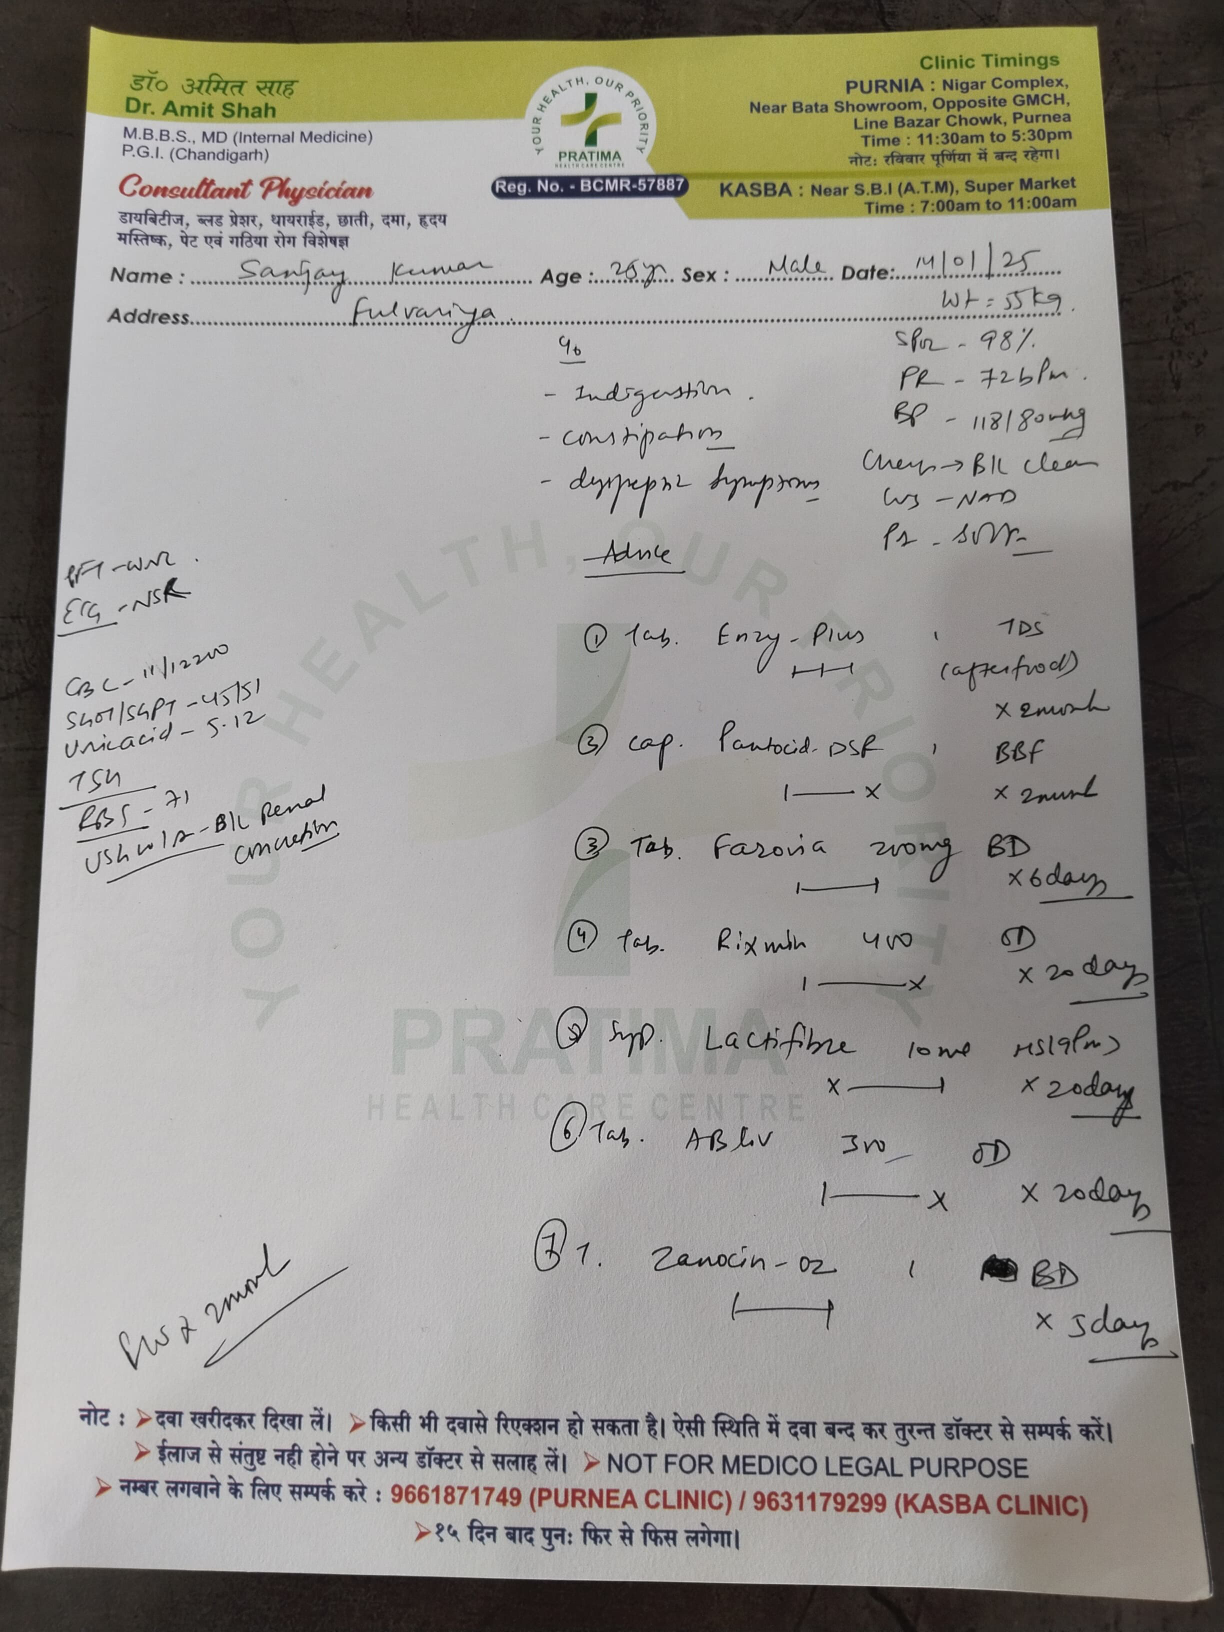 डॉ० अमित साह
Dr. Amit Shah
M.B.B.S., MD (Internal Medicine)
P.G.I. (Chandigarh)
Consultant Physician
डायबिटीज, ब्लड प्रेशर, थायराईड, छाती, दमा, हृदय
मस्तिष्क, पेट एवं गठिया रोग विशेषज्ञ
YOUR HEALTH, OUR PRIORITY
PRATIMA
HEALTH CARE CENTRE
Reg. No. - BCMR-57887
Clinic Timings
PURNIA : Nigar Complex,
Near Bata Showroom, Opposite GMCH,
Line Bazar Chowk, Purnea
Time : 11:30am to 5:30pm
नोट: रविवार पूर्णिया में बन्द रहेगा।
KASBA : Near S.B.I (A.T.M), Super Market
Time : 7:00am to 11:00am
Name : Sanjay Kumar Age : Sex : Male Date: 14/01/25
Address Fulvariya
Wt = 55kg
SPO2 - 98%
PR - 72bpm.
BP - 118/80mmHg
Chest → B/L clear
CVS - NAD
PA - Soft
C/o
- Indigestion.
- constipation
- dyspeptic symptoms
Advice
PFT - WNL
ECG - NSR
CBC - 11/12200
SGOT/SGPT - 45/51
Uric acid - 5.12
TSH
RBS - 71
USG W/A - B/L Renal
concretion
① Tab. Enzy-Plus 1 TDS
(after food)
x 2month
② Cap. Pantocid-DSR 1 BBF
x 2month
③ Tab. Farovia 200mg BD
x 6days
④ Tab. Rixmin 400 OD
x 20days
⑤ Syp. Lactifibre 10ml HS(9Pm)
x 20days
⑥ Tab. ABliv 300 OD
x 20days
⑦ T. Zanocin-OZ 1 BD
x 5days
2month
YOUR HEALTH, OUR PRIORITY
PRATIMA
HEALTH CARE CENTRE
नोट : ➤दवा खरीदकर दिखा लें। ➤किसी भी दवासे रिएक्शन हो सकता है। ऐसी स्थिति में दवा बन्द कर तुरन्त डॉक्टर से सम्पर्क करें।
➤ईलाज से संतुष्ट नही होने पर अन्य डॉक्टर से सलाह लें। ➤NOT FOR MEDICO LEGAL PURPOSE
➤नम्बर लगवाने के लिए सम्पर्क करे : 9661871749 (PURNEA CLINIC) / 9631179299 (KASBA CLINIC)
➤१५ दिन बाद पुनः फिर से फिस लगेगा।